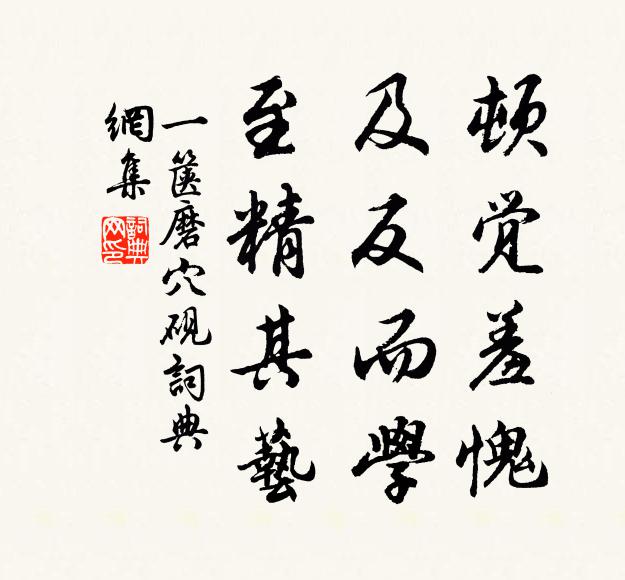 頓覺羞愧
及反而學
至精其藝
一箧磨穴硯詞典
網集
詞典
网印